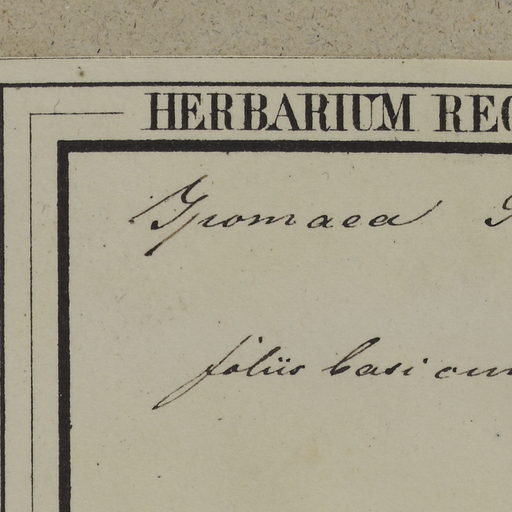 HERBARIUM REG
Ipomaea
foliis basi